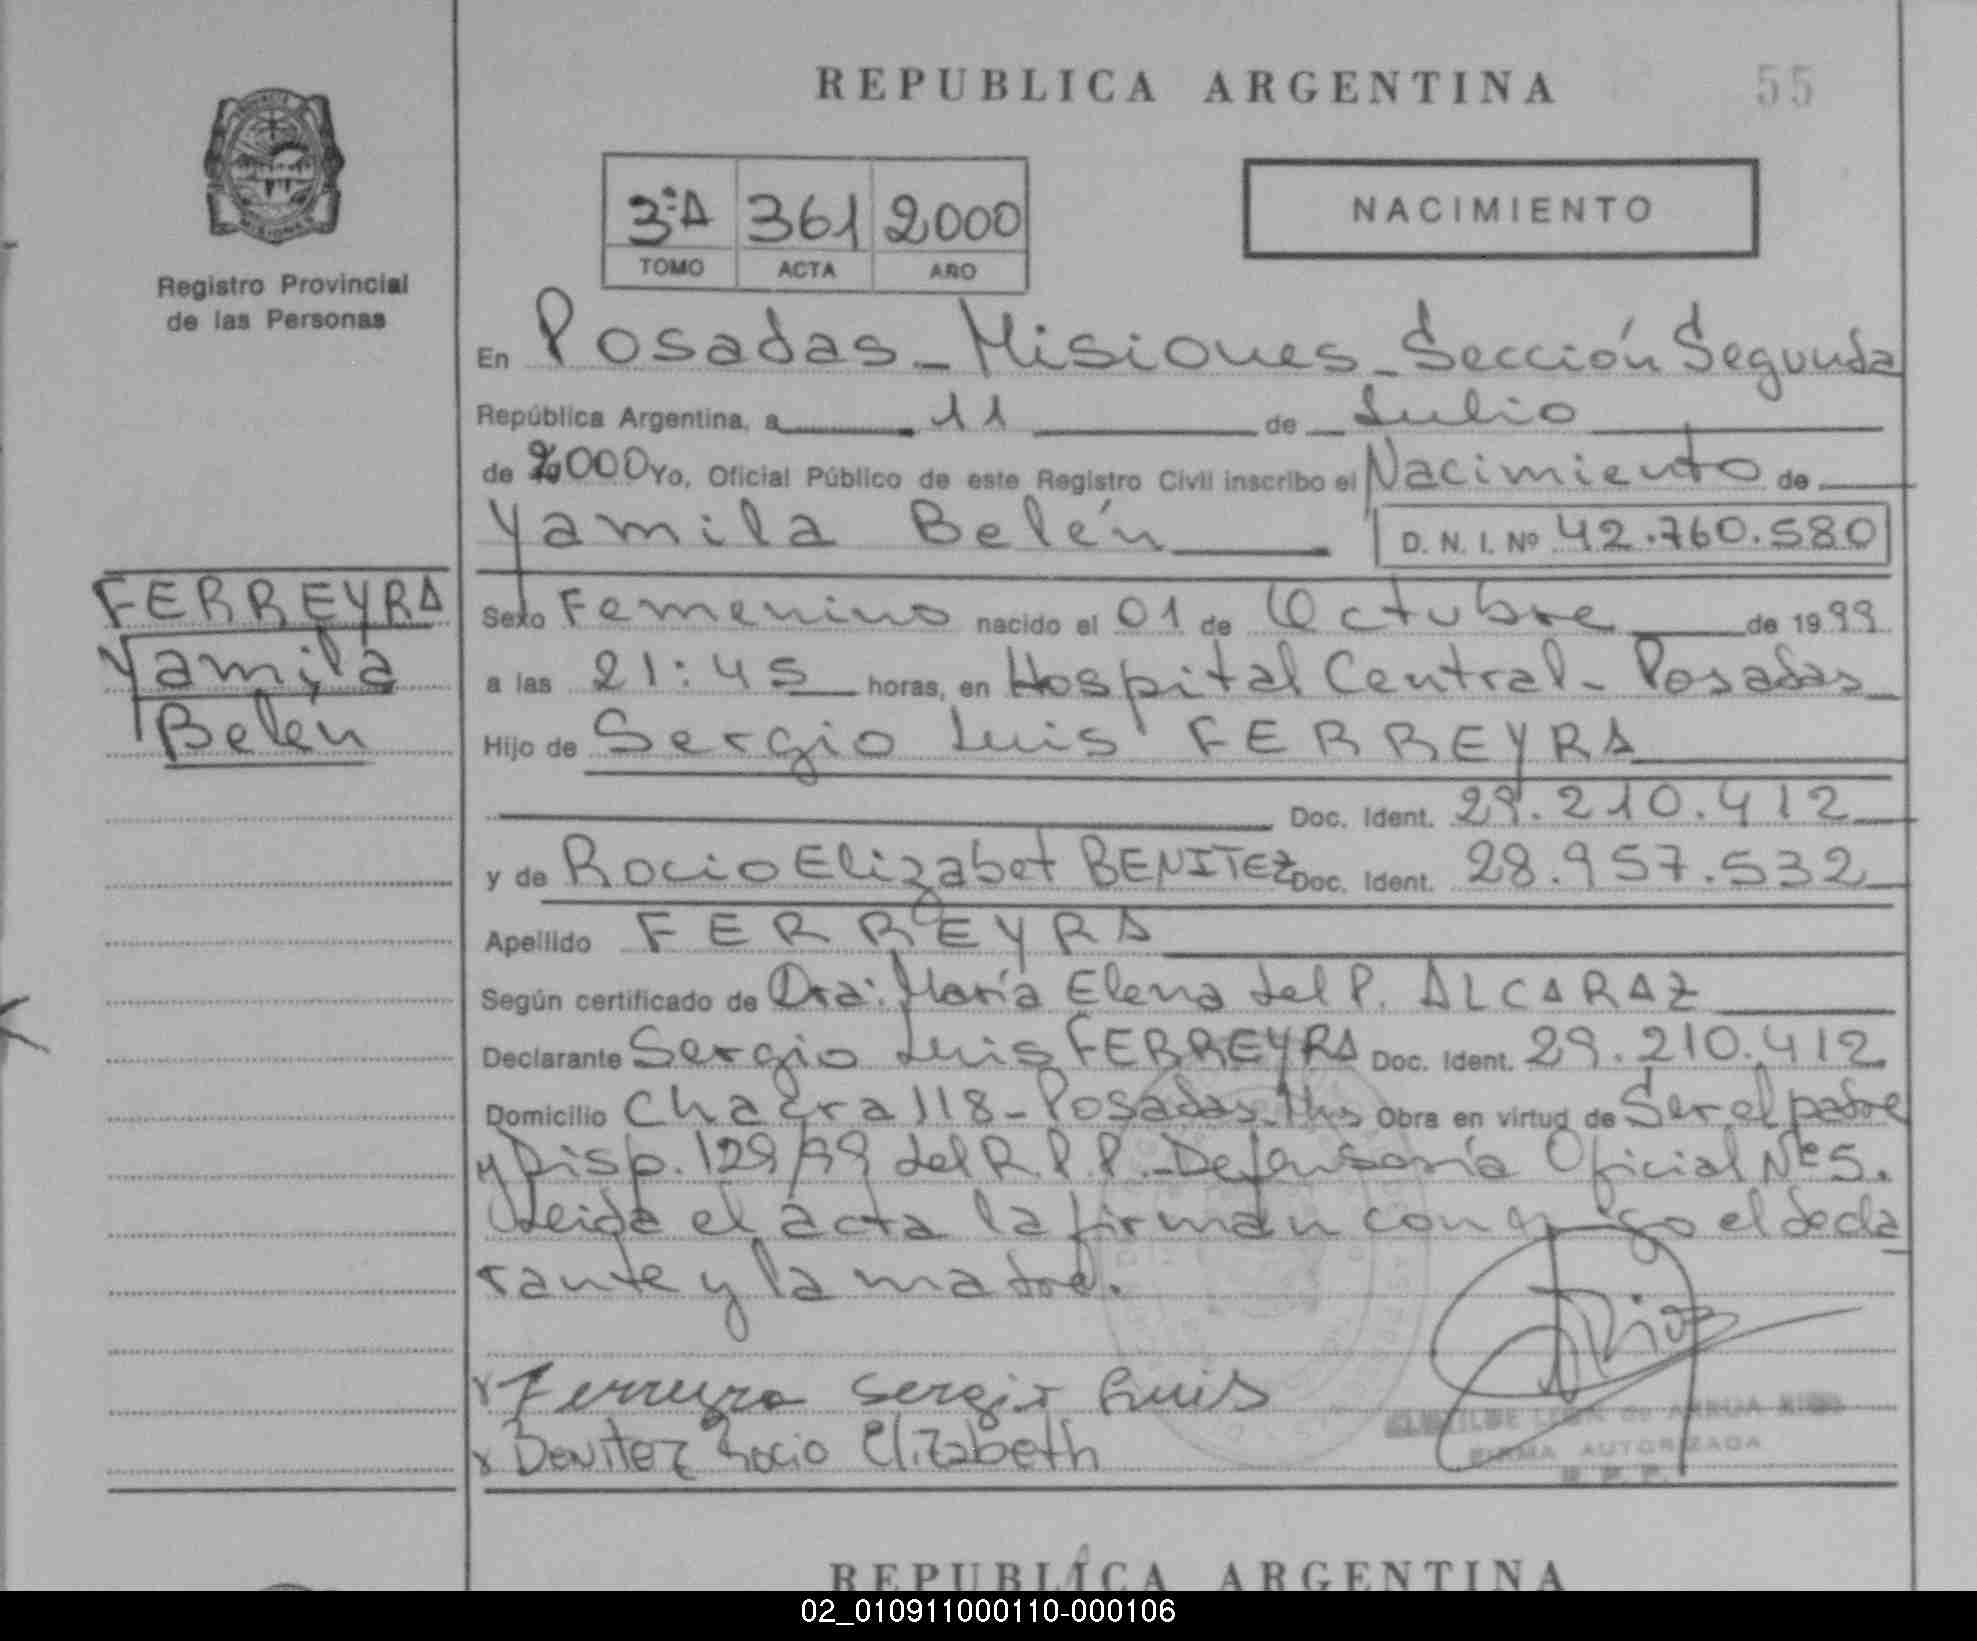 REPUBLICA ARGENTINA 55
3ªA 361 2000
TOMO ACTA AÑO
NACIMIENTO
Registro Provincial
de las Personas
FERREYRA
Yamila
Belén
En Posadas - Misiones - Sección Segunda
República Argentina, a 11 de Julio
de 2000 Yo, Oficial Público de este Registro Civil inscribo el Nacimiento de
Yamila Belén D. N. I. Nº 42.760.580
Sexo Femenino nacido el 01 de Octubre de 1999
a las 21:45 horas, en Hospital Central - Posadas
Hijo de Sergio Luis FERREYRA
Doc. Ident. 29.210.412
y de Rocio Elizabet BENITEZ Doc. Ident. 28.957.532
Apellido FERREYRA
Según certificado de Dra: María Elena del P. ALCARAZ
Declarante Sergio Luis FERREYRA Doc. Ident. 29.210.412
Domicilio Chacra 118 - Posadas. Mns Obra en virtud de Ser el padre
y Disp. 129/99 del R.P.P. - Defensoría Oficial Nº 5.
Leida el acta la firman conmigo el decla
rante y la madre.
Ferreyra Sergio Luis
Benitez Rocio Elizabeth
FIRMA AUTORIZADA
R. P. P.
REPUBLICA ARGENTINA
02_010911000110-000106